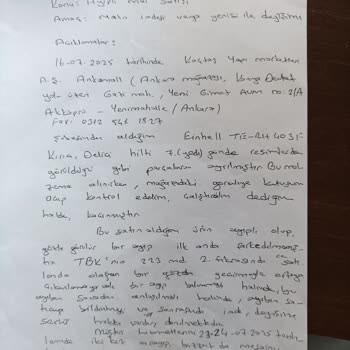 Konu: Ayıplı mal satışı
Amaç: Malın iadesi veya yenisi ile değişimi
Açıklamalar:
16-07-2025 tarihinde Koçtaş Yapı marketleri
A.Ş. Ankamall (Ankara mağazası, Konya Devlet
yolu üzeri Gazi mah., Yeni Gimat Avm no: 2/A
Akköprü - Yenimahalle / Ankara)
Fax: 0312 541 1827
Şubesinden aldığım Einhell TE-RH 40 3F
Kırıcı, Delici hilti 7.(yedi) günde resimlerde
görüldüğü gibi parçalara ayrılmıştır. Bu mal-
zeme alınırken, mağazadaki görevliye kutuyu
açıp kontrol edelim, çalıştıralım dediğim
halde, kaçınmıştır.
Bu satın aldığım ürün ayıplı olup,
gözle görülür bir ayıp ilk anda farkedilmemiş-
tir. TBK'nın 223 md. 2. fıkrasında satı
landa olağan bir gözden geçirmeyle ortaya
çıkarılamayacak bir ayıp bulunması halinde, bu
ayıbın sonradan anlaşılması halinde, ayıbın sa-
tıcıya bildirilmesi, ve sonrasında iade, değiştirme
hakkı vardır, denilmektedir.
Müşteri hizmetlerini 23-24-07-2025 tarih-
lerinde iki kez arayıp,